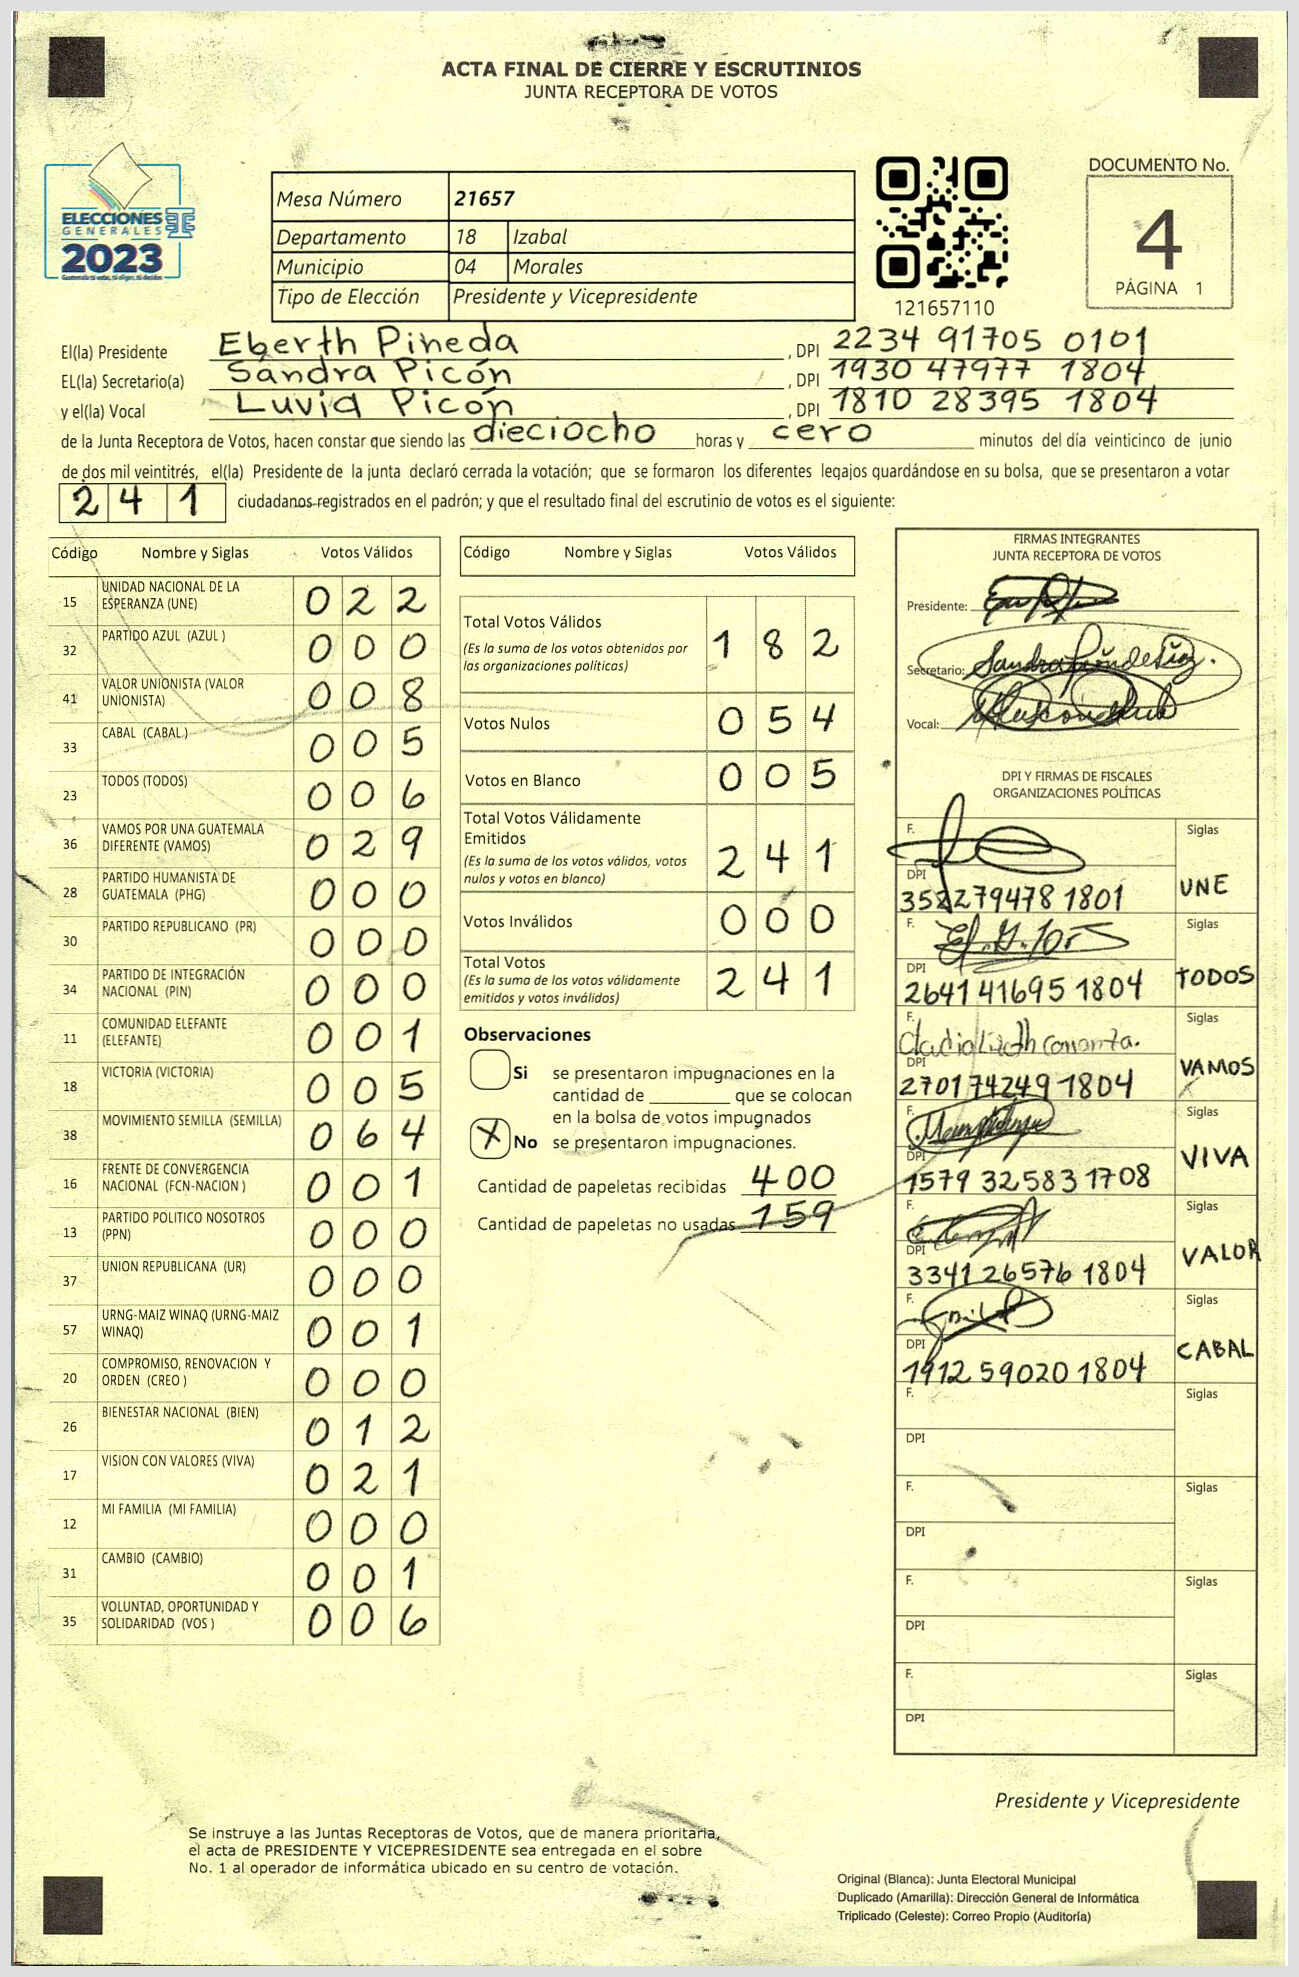 ACTA FINAL DE CIERRE Y ESCRUTINIOS
JUNTA RECEPTORA DE VOTOS
ELECCIONES
GENERALES
2023
Guatemala tú votas, tú eliges, tú decides
Mesa Número 21657
Departamento 18 Izabal
Municipio 04 Morales
Tipo de Elección Presidente y Vicepresidente
121657110
DOCUMENTO No.
4
PÁGINA 1
El(la) Presidente Eberth Pineda , DPI 2234 91705 0101
EL(la) Secretario(a) Sandra Picón , DPI 1930 47977 1804
y el(la) Vocal Luvia Picón , DPI 1810 28395 1804
de la Junta Receptora de Votos, hacen constar que siendo las dieciocho horas y cero minutos del día veinticinco de junio
de dos mil veintitrés, el(la) Presidente de la junta declaró cerrada la votación; que se formaron los diferentes legajos guardándose en su bolsa, que se presentaron a votar
241 ciudadanos registrados en el padrón; y que el resultado final del escrutinio de votos es el siguiente:
Código Nombre y Siglas Votos Válidos
15 UNIDAD NACIONAL DE LA ESPERANZA (UNE) 022
32 PARTIDO AZUL (AZUL ) 000
41 VALOR UNIONISTA (VALOR UNIONISTA) 008
33 CABAL (CABAL ) 005
23 TODOS (TODOS) 006
36 VAMOS POR UNA GUATEMALA DIFERENTE (VAMOS) 029
28 PARTIDO HUMANISTA DE GUATEMALA (PHG) 000
30 PARTIDO REPUBLICANO (PR) 000
34 PARTIDO DE INTEGRACIÓN NACIONAL (PIN) 000
11 COMUNIDAD ELEFANTE (ELEFANTE) 001
18 VICTORIA (VICTORIA) 005
38 MOVIMIENTO SEMILLA (SEMILLA) 064
16 FRENTE DE CONVERGENCIA NACIONAL (FCN-NACION ) 001
13 PARTIDO POLITICO NOSOTROS (PPN) 000
37 UNION REPUBLICANA (UR) 000
57 URNG-MAIZ WINAQ (URNG-MAIZ WINAQ) 001
20 COMPROMISO, RENOVACION Y ORDEN (CREO ) 000
26 BIENESTAR NACIONAL (BIEN) 012
17 VISION CON VALORES (VIVA) 021
12 MI FAMILIA (MI FAMILIA) 000
31 CAMBIO (CAMBIO) 001
35 VOLUNTAD, OPORTUNIDAD Y SOLIDARIDAD (VOS ) 006
Código Nombre y Siglas Votos Válidos
Total Votos Válidos 182
(Es la suma de los votos obtenidos por
las organizaciones políticas)
Votos Nulos 054
Votos en Blanco 005
Total Votos Válidamente
Emitidos 241
(Es la suma de los votos válidos, votos
nulos y votos en blanco)
Votos Inválidos 000
Total Votos 241
(Es la suma de los votos válidamente
emitidos y votos inválidos)
Observaciones
Si se presentaron impugnaciones en la
cantidad de ________ que se colocan
en la bolsa de votos impugnados
X No se presentaron impugnaciones.
Cantidad de papeletas recibidas 400
Cantidad de papeletas no usadas 159
FIRMAS INTEGRANTES
JUNTA RECEPTORA DE VOTOS
Presidente:
Secretario:
Vocal:
DPI Y FIRMAS DE FISCALES
ORGANIZACIONES POLÍTICAS
F. Siglas
DPI 3522794781801 UNE
F. Siglas
DPI 2641 41695 1804 TODOS
F. Siglas
DPI 270174249 1804 VAMOS
F. Siglas
DPI 1579 32583 1708 VIVA
F. Siglas
DPI 3341 26576 1804 VALOR
F. Siglas
DPI 1912 59020 1804 CABAL
F. Siglas
DPI
F. Siglas
DPI
F. Siglas
DPI
F. Siglas
DPI
Presidente y Vicepresidente
Se instruye a las Juntas Receptoras de Votos, que de manera prioritaria,
el acta de PRESIDENTE Y VICEPRESIDENTE sea entregada en el sobre
No. 1 al operador de informática ubicado en su centro de votación.
Original (Blanca): Junta Electoral Municipal
Duplicado (Amarilla): Dirección General de Informática
Triplicado (Celeste): Correo Propio (Auditoría)